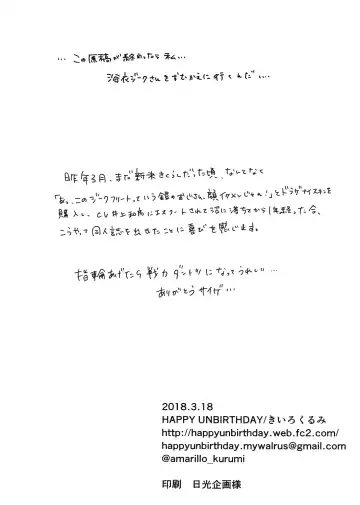 … この原稿が終わったら 私…
浴衣ジークさんをおむかえに行くんだ…
昨年3月、まだ新米きくうしだった頃、なんとなく
「あっ、このジークフリートっていう鎧のおじさん、顔イケメンじゃん！」とドラゴナイスキンを
購入し、CV井上和彦にエスコートされて沼に落ちてから1年経った今、
こうやって同人誌を出せたことに喜びを感じます。
指輪あげたら戦力ダントツになってうれしい…
ありがとうサイゲ…
2018.3.18
HAPPY UNBIRTHDAY/きいろくるみ
http://happyunbirthday.web.fc2.com/
happyunbirthday.mywalrus@gmail.com
@amarillo_kurumi
印刷　日光企画様